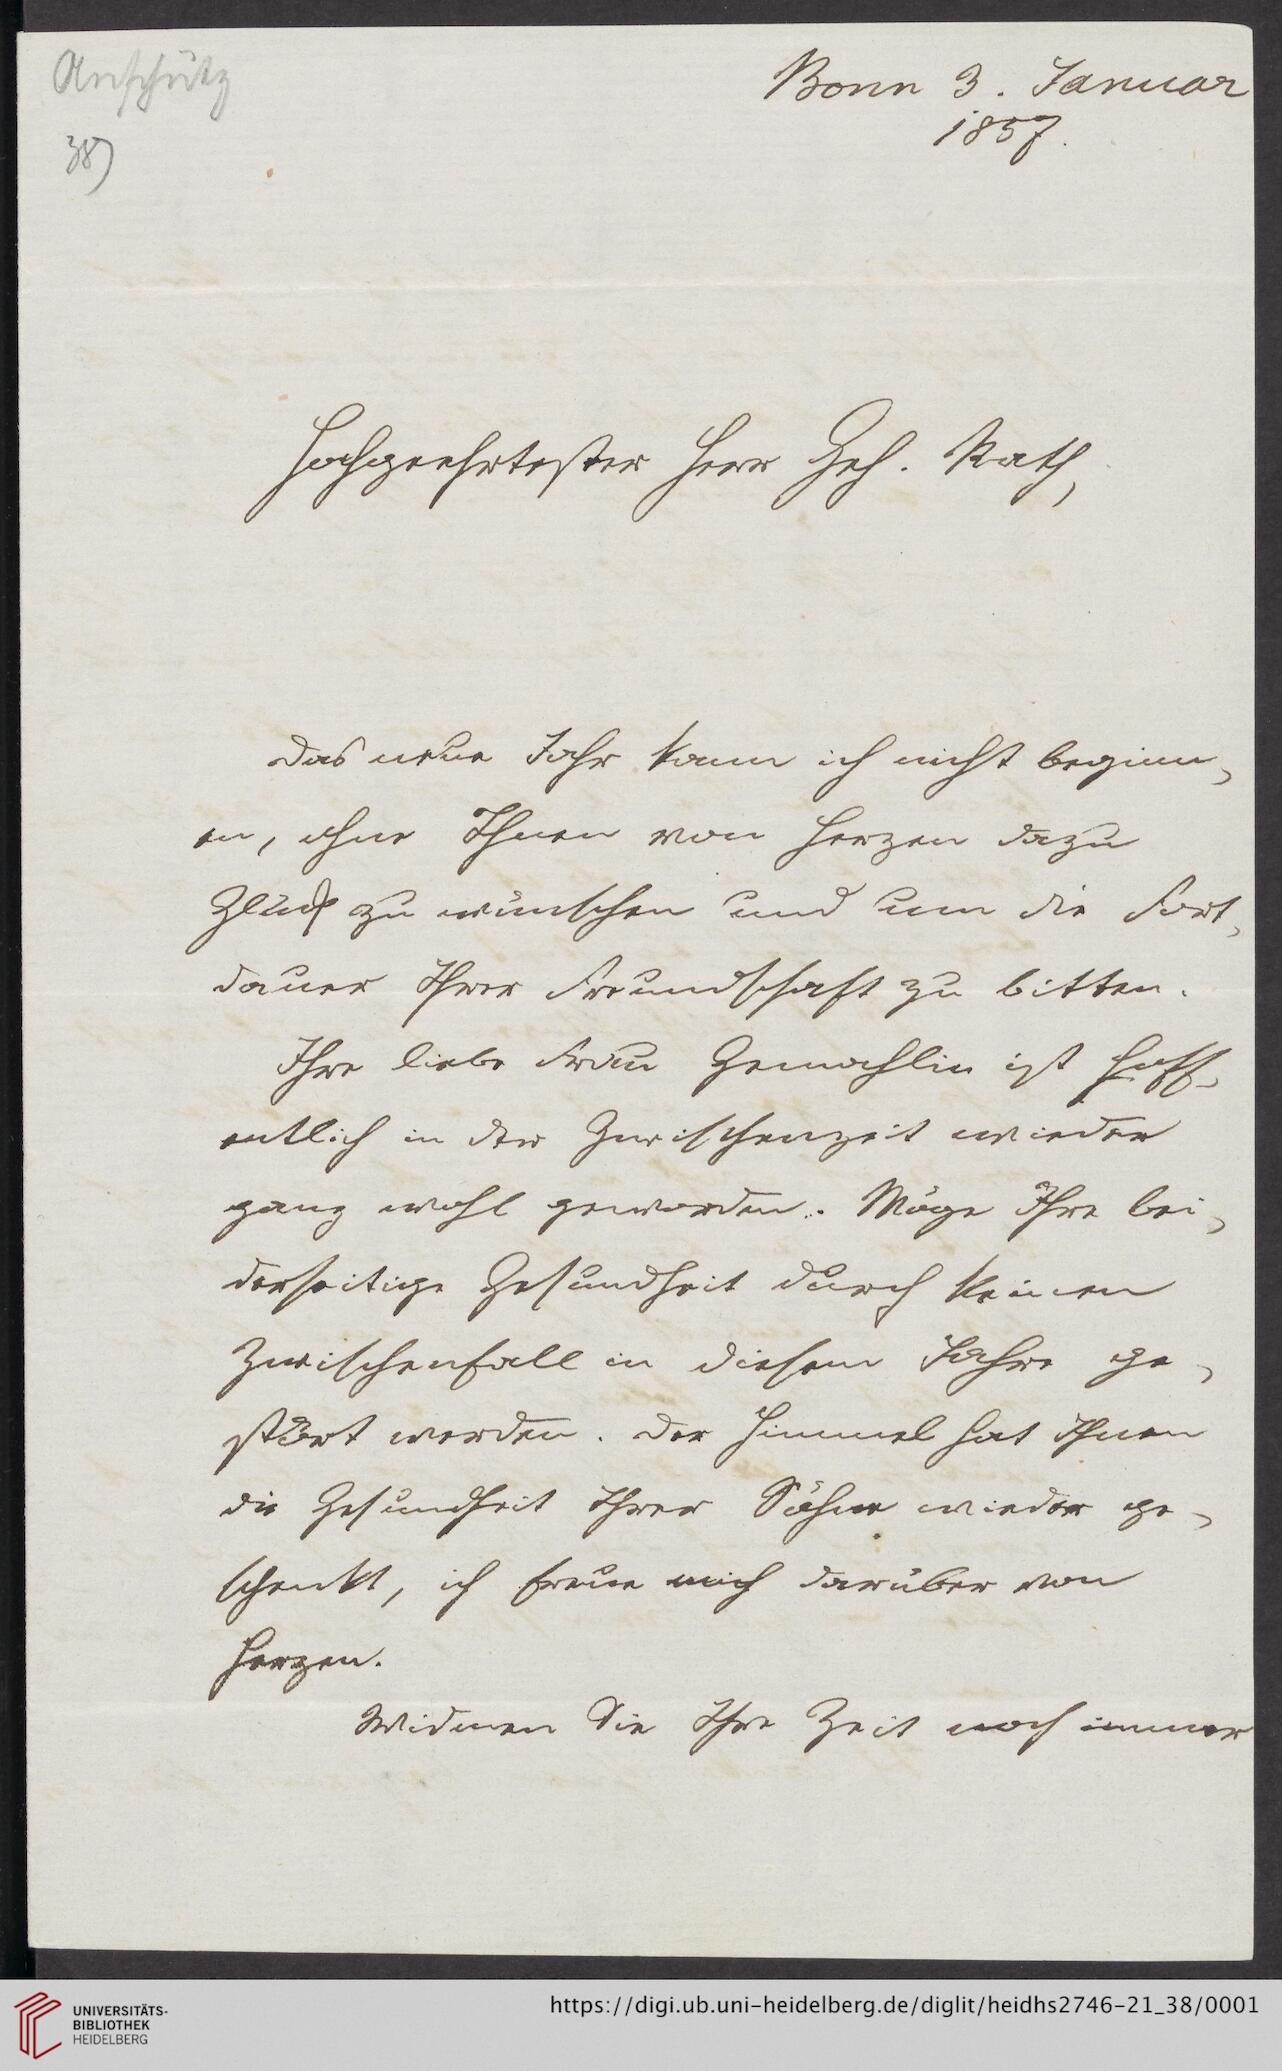 Anschütz
38)
Bonn 3. Januar
1857.
Hochgeehrtester Herr Geh. Rath,
Das neue Jahr kann ich nicht beginn-
en, ohne Ihnen von Herzen dazu
Glück zu wünschen und um die Fort-
dauer Ihrer Freundschaft zu bitten.
Ihre liebe Frau Gemahlin ist hoff-
entlich in der Zwischenzeit wieder
ganz wohl geworden. Möge Ihre bei-
derseitige Gesundheit durch keinen
Zwischenfall in diesem Jahre ge-
stört werden. Der Himmel hat Ihnen
die Gesundheit Ihrer Söhne wieder ge-
schenkt, ich freue mich darüber von
Herzen.
Widmen Sie Ihre Zeit noch immer
UNIVERSITÄTS-
BIBLIOTHEK
HEIDELBERG
https://digi.ub.uni-heidelberg.de/diglit/heidhs2746-21_38/0001